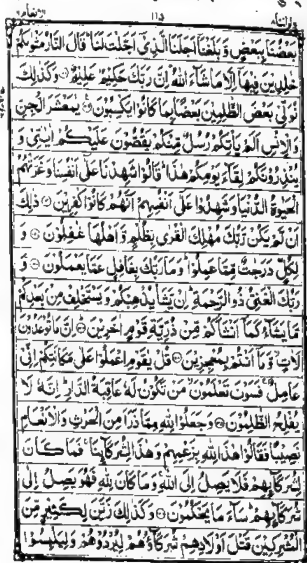 ولو اننا ٨ ١١٥ الانعام ٦
بَعْضُنَا بِبَعْضٍ وَّبَلَغْنَا اَجَلَنَا الَّذِيْٓ اَجَّلْتَ لَنَا ؕ قَالَ النَّارُ مَثْوٰىكُمْ
خٰلِدِيْنَ فِيْهَاۤ اِلَّا مَا شَآءَ اللّٰهُ ؕ اِنَّ رَبَّكَ حَكِيْمٌ عَلِيْمٌ ۝ وَكَذٰلِكَ
نُوَلِّيْ بَعْضَ الظّٰلِمِيْنَ بَعْضًۢا بِمَا كَانُوْا يَكْسِبُوْنَ ۝ يٰمَعْشَرَ الْجِنِّ
وَالْاِنْسِ اَلَمْ يَاْتِكُمْ رُسُلٌ مِّنْكُمْ يَقُصُّوْنَ عَلَيْكُمْ اٰيٰتِيْ وَ
يُنْذِرُوْنَكُمْ لِقَآءَ يَوْمِكُمْ هٰذَا ؕ قَالُوْا شَهِدْنَا عَلٰٓى اَنْفُسِنَا وَغَرَّتْهُمُ
الْحَيٰوةُ الدُّنْيَا وَشَهِدُوْا عَلٰٓى اَنْفُسِهِمْ اَنَّهُمْ كَانُوْا كٰفِرِيْنَ ۝ ذٰلِكَ
اَنْ لَّمْ يَكُنْ رَّبُّكَ مُهْلِكَ الْقُرٰى بِظُلْمٍ وَّاَهْلُهَا غٰفِلُوْنَ ۝ وَ
لِكُلٍّ دَرَجٰتٌ مِّمَّا عَمِلُوْا ؕ وَمَا رَبُّكَ بِغَافِلٍ عَمَّا يَعْمَلُوْنَ ۝ وَ
رَبُّكَ الْغَنِيُّ ذُو الرَّحْمَةِ ؕ اِنْ يَّشَاْ يُذْهِبْكُمْ وَيَسْتَخْلِفْ مِنْۢ بَعْدِكُمْ
مَّا يَشَآءُ كَمَاۤ اَنْشَاَكُمْ مِّنْ ذُرِّيَّةِ قَوْمٍ اٰخَرِيْنَ ۝ اِنَّ مَا تُوْعَدُوْنَ
لَاٰتٍ ۙ وَّمَاۤ اَنْتُمْ بِمُعْجِزِيْنَ ۝ قُلْ يٰقَوْمِ اعْمَلُوْا عَلٰى مَكَانَتِكُمْ اِنِّيْ
عَامِلٌ ۚ فَسَوْفَ تَعْلَمُوْنَ ۙ مَنْ تَكُوْنُ لَهٗ عَاقِبَةُ الدَّارِ ؕ اِنَّهٗ لَا
يُفْلِحُ الظّٰلِمُوْنَ ۝ وَجَعَلُوْا لِلّٰهِ مِمَّا ذَرَاَ مِنَ الْحَرْثِ وَالْاَنْعَامِ
نَصِيْبًا فَقَالُوْا هٰذَا لِلّٰهِ بِزَعْمِهِمْ وَهٰذَا لِشُرَكَآئِنَا ۚ فَمَا كَانَ
لِشُرَكَآئِهِمْ فَلَا يَصِلُ اِلَى اللّٰهِ ۚ وَمَا كَانَ لِلّٰهِ فَهُوَ يَصِلُ اِلٰى
شُرَكَآئِهِمْ ؕ سَآءَ مَا يَحْكُمُوْنَ ۝ وَكَذٰلِكَ زَيَّنَ لِكَثِيْرٍ مِّنَ
الْمُشْرِكِيْنَ قَتْلَ اَوْلَادِهِمْ شُرَكَآؤُهُمْ لِيُرْدُوْهُمْ وَلِيَلْبِسُوْا